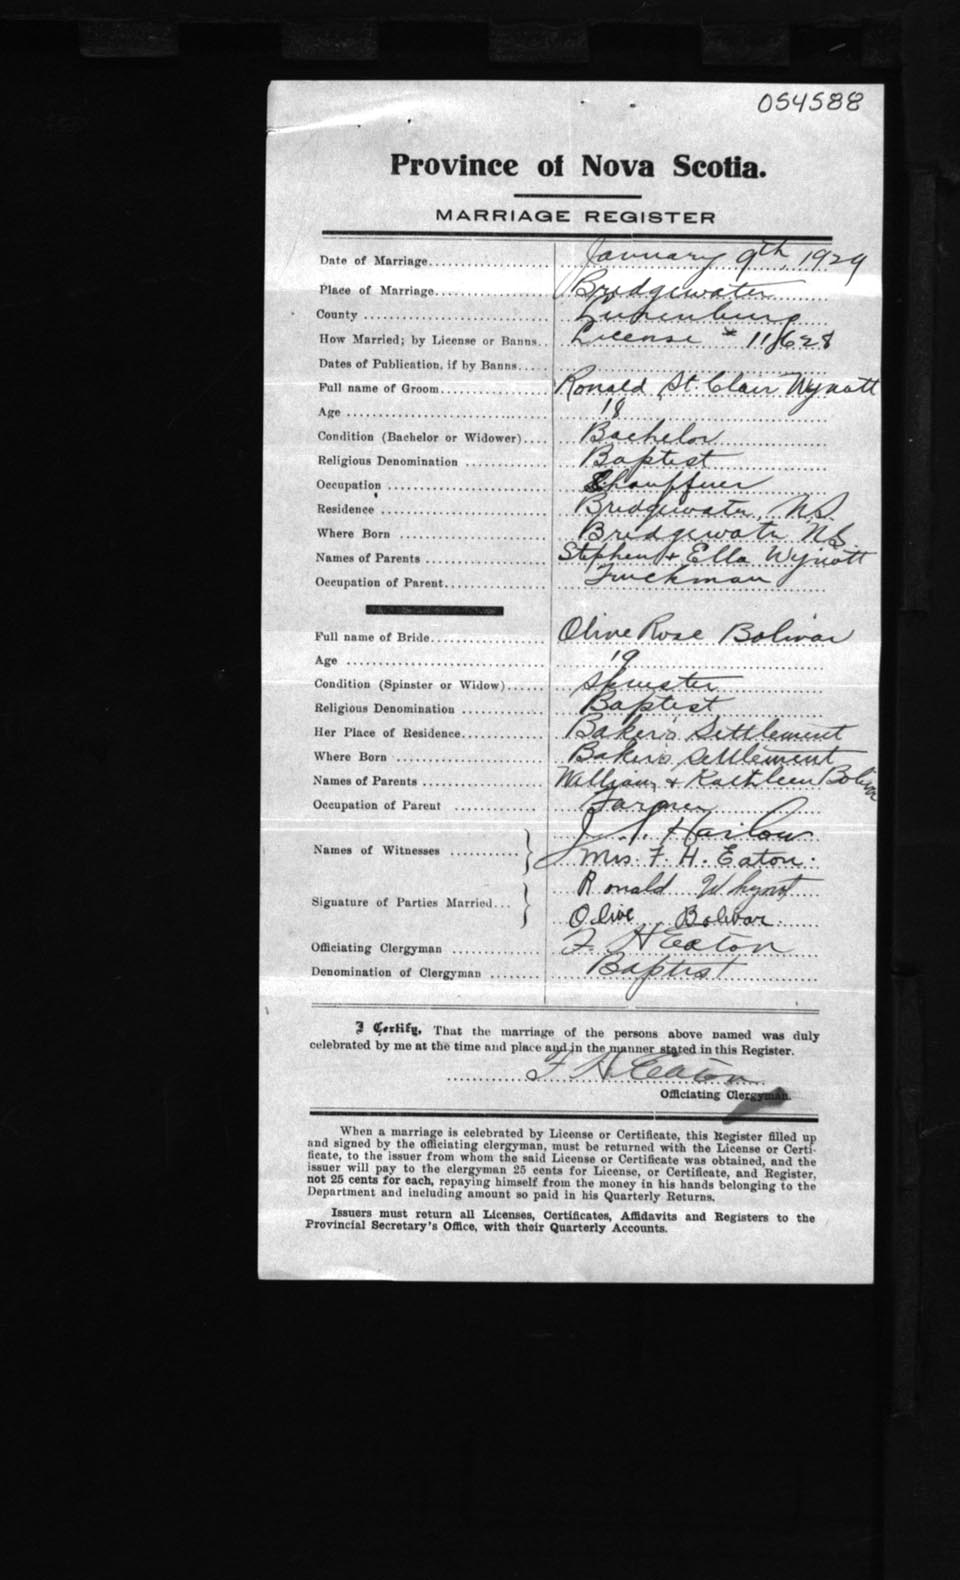 054588
Province of Nova Scotia.
MARRIAGE REGISTER
Date of Marriage January 9th, 1929
Place of Marriage Bridgewater
County Lunenburg
How Married; by License or Banns License # 11628
Dates of Publication, if by Banns
Full name of Groom Ronald St. Clair Wynott
Age 18
Condition (Bachelor or Widower) Bachelor
Religious Denomination Baptist
Occupation Chauffuer
Residence Bridgewater, N.S.
Where Born Bridgewater N.S.
Names of Parents Stephen + Ella Wynott
Occupation of Parent Truckman
Full name of Bride Olive Rose Bolivar
Age 19
Condition (Spinster or Widow) Spinster
Religious Denomination Baptist
Her Place of Residence Baker's Settlement
Where Born Baker's Settlement
Names of Parents William + Kathleen Bolivar
Occupation of Parent Farmer
Names of Witnesses Harlow
Mrs. F. H. Eaton.
Signature of Parties Married Ronald Whynot
Olive Bolivar.
Officiating Clergyman F. H Eaton
Denomination of Clergyman Baptist
I Certify, That the marriage of the persons above named was duly
celebrated by me at the time and place and in the manner stated in this Register.
F H Eaton
Officiating Clergyman.
When a marriage is celebrated by License or Certificate, this Register filled up
and signed by the officiating clergyman, must be returned with the License or Certi-
ficate, to the issuer from whom the said License or Certificate was obtained, and the
issuer will pay to the clergyman 25 cents for License, or Certificate, and Register,
not 25 cents for each, repaying himself from the money in his hands belonging to the
Department and including amount so paid in his Quarterly Returns.
Issuers must return all Licenses, Certificates, Affidavits and Registers to the
Provincial Secretary's Office, with their Quarterly Accounts.